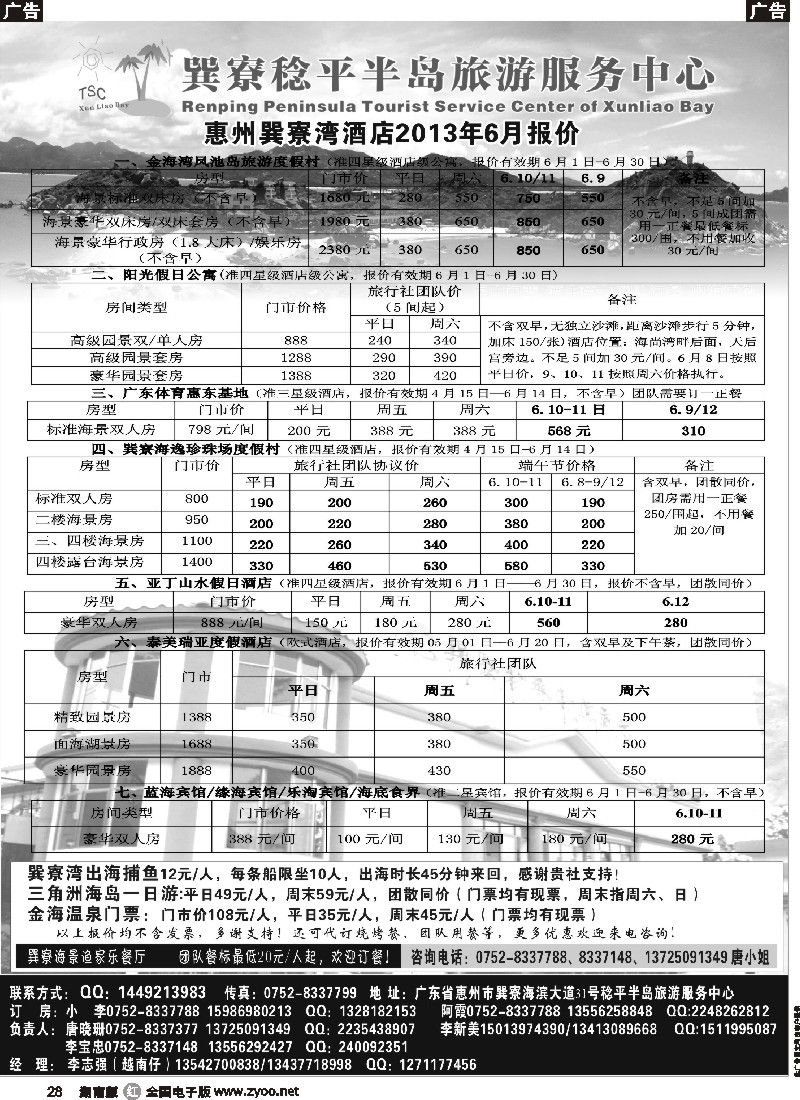 广告
广告
TSC
Xun Liao Bay
巽寮稔平半岛旅游服务中心
Renping Peninsula Tourist Service Center of Xunliao Bay
惠州巽寮湾酒店2013年6月报价
一、金海湾凤池岛旅游度假村（准四星级酒店级公寓，报价有效期6月1日-6月30日）
房型 门市价 平日 周六 6.10/11 6.9 备注
海景标准双床房（不含早） 1680元 280 550 750 550
海景豪华双床房/双床套房（不含早） 1980元 380 650 850 650
海景豪华行政房（1.8大床）/娱乐房（不含早） 2380元 380 650 850 650
不含早，不足5间加
30元/间，5间成团需
用一正餐最低餐标
300/围，不用餐加收
30元/间
二、阳光假日公寓(准四星级酒店级公寓，报价有效期6月1日-6月30日)
房间类型 门市价格 旅行社团队价（5间起） 备注
平日 周六
高级园景双/单人房 888 240 340
高级园景套房 1288 290 390
豪华园景套房 1388 320 420
不含双早,无独立沙滩,距离沙滩步行5分钟,
加床150/张)酒店位置：海尚湾畔后面，天后
宫旁边。不足5间加30元/间。6月8日按照
平日价，9、10、11按照周六价格执行。
三、广东体育惠东基地（准三星级酒店，报价有效期4月15日—6月14日，不含早）团队需要订一正餐
房型 门市价 平日 周五 周六 6.10-11日 6.9/12
标准海景双人房 798元/间 200元 388元 388元 568元 310
四、巽寮海逸珍珠场度假村（准四星级酒店，报价有效期4月15日-6月14日）
房型 门市价 旅行社团队协议价 端午节价格 备注
平日 周五 周六 6.10-11 6.8-9/12
标准双人房 800 190 200 260 300 190
二楼海景房 950 200 220 280 380 200
三、四楼海景房 1100 220 260 340 400 220
四楼露台海景房 1400 330 460 530 580 330
含双早，团散同价，
团房需用一正餐
250/围起，不用餐
加20/间
五、亚丁山水假日酒店（准四星级酒店，报价有效期6月1日——6月30日，报价不含早，团散同价）
房型 门市价 平日 周五 周六 6.10-11 6.12
豪华双人房 888元/间 150元 180元 280元 560 280
六、泰美瑞亚度假酒店（欧式酒店，报价有效期05月01日—6月20日，含双早及下午茶，团散同价）
房型 门市 旅行社团队
平日 周五 周六
精致园景房 1388 350 380 500
面海湖景房 1688 350 380 500
豪华园景房 1888 400 430 550
七、蓝海宾馆/缘海宾馆/乐淘宾馆/海底食界（准二星宾馆，报价有效期6月1日-6月30日，不含早）
房间类型 门市价格 平日 周五 周六 6.10-11
豪华双人房 388元/间 100元/间 130元/间 180元/间 280元
巽寮湾出海捕鱼12元/人，每条船限坐10人，出海时长45分钟来回，感谢贵社支持！
三角洲海岛一日游:平日49元/人，周末59元/人，团散同价（门票均有现票，周末指周六、日）
金海温泉门票：门市价108元/人，平日35元/人，周末45元/人（门票均有现票）
以上报价均不含发票，多谢支持！还可代订烧烤餐、团队用餐等，更多优惠欢迎来电咨询！
巽寮海景渔家乐餐厅 团队餐标最低20元/人起，欢迎订餐！ 咨询电话：0752-8337788、8337148、13725091349唐小姐
联系方式：QQ：1449213983 传真：0752-8337799 地址：广东省惠州市巽寮海滨大道31号稔平半岛旅游服务中心
订 房：小 李0752-8337788 15986980213 QQ：1328182153 阿霞0752-8337788 13556258848 QQ:2248262812
负责人：唐晓珊0752-8337377 13725091349 QQ：2235438907 李新美15013974390/13413089668 QQ:1511995087
李宝忠0752-8337148 13556292427 QQ：240092351
经 理：李志强（越南仔）13542700838/13437718998 QQ：1271177456
28 湖南版 红 全国电子版 www.zyoo.net